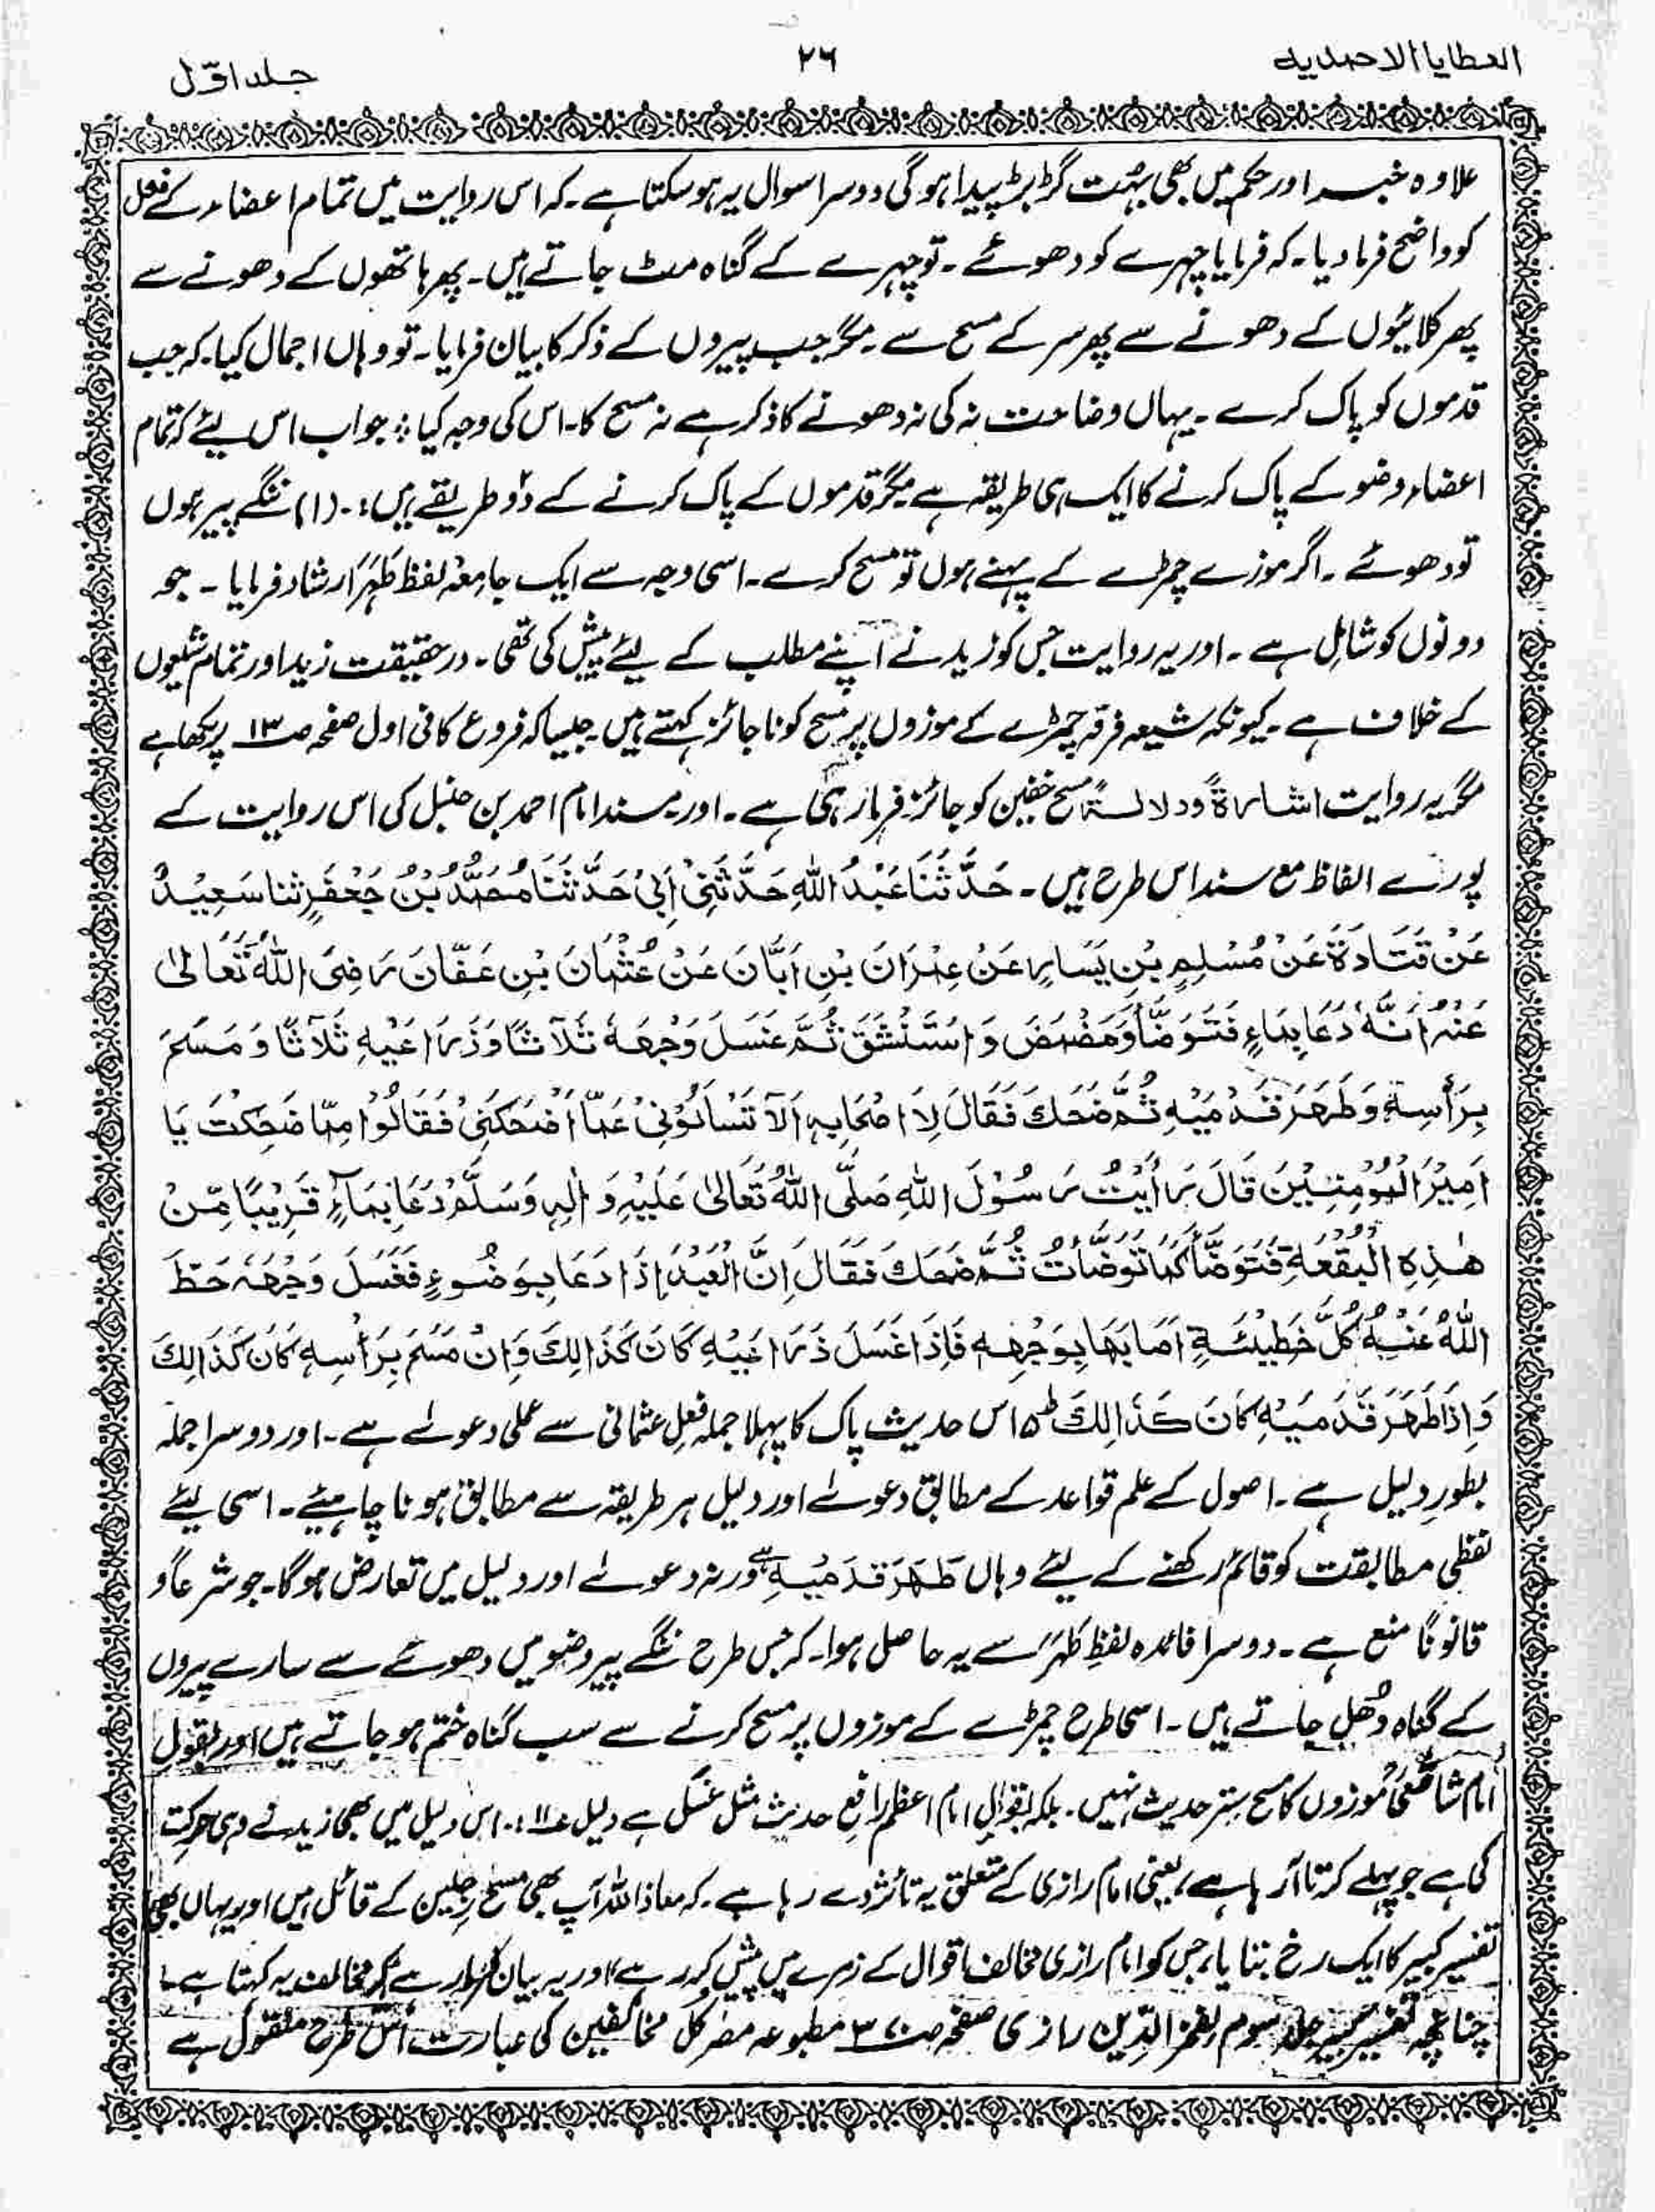 العطايا الاحمديه
٢٦
جلد اوّل
علاوہ خبر اور حکم میں بھی بہُت گڑبڑ پیدا ہو گی دوسرا سوال یہ ہو سکتا ہے ۔ کہ اس روایت میں تمام اعضاء کے فعل
کو واضح فرما دیا ۔ کہ فرمایا چہرے کو دھوئے ۔ تو چہرے کے گناہ مٹ جاتے ہیں ۔ پھر ہاتھوں کے دھونے سے
پھر کلائیوں کے دھونے سے پھر سر کے مسح سے ۔ مگر جب پیروں کے ذکر کا بیان فرمایا ۔ تو وہاں اجمال کیا ۔ کہ جب
قدموں کو پاک کرے ۔ یہاں وضاحت نہ کی نہ دھونے کا ذکر ہے نہ مسح کا ۔ اس کی وجہ کیا ؛ جواب اس لیئے کہ تمام
اعضاء وضو کے پاک کرنے کا ایک ہی طریقہ ہے مگر قدموں کے پاک کرنے کے دو طریقے ہیں : ۔ (۱) ننگے پیر ہوں
تو دھوئے ۔ اگر موزے چمڑے کے پہنے ہوں تو مسح کرے ۔ اسی وجہ سے ایک جامعہ لفظ طَہَّرَ ارشاد فرمایا ۔ جو
دونوں کو شامِل ہے ۔ اور یہ روایت جس کو زید نے اپنے مطلب کے لیئے پیش کی تھی ۔ در حقیقت زید اور تمام شیعوں
کے خلاف ہے ۔ کیونکہ شیعہ فرقہ چمڑے کے موزوں پر مسح کو ناجائز کہتے ہیں جیسا کہ فروع کافی اول صفحہ صـ١٣ پر لکھا ہے
مگر یہ روایت اشارۃً و دلالۃً مسح خفین کو جائز فرما رہی ہے ۔ اور مسند امام احمد بن حنبل کی اس روایت کے
پورے الفاظ مع سند اس طرح ہیں ۔ حَدَّثَنَا عَبْدُ اللهِ حَدَّثَنِیْ اَبِیْ حَدَّثَنَا مُحَمَّدُ بْنُ جَعْفَرٍ ثنا سَعِیْدٌ
عَنْ قَتَادَۃَ عَنْ مُسْلِمِ بْنِ یَسَارٍ عَنْ عِمْرَانَ بْنِ اَبَّانَ عَنْ عُثْمَانَ بْنِ عَفَّانَ رَضِیَ اللهُ تَعَالیٰ
عَنْہُ اَنَّہٗ دَعَا بِمَاءٍ فَتَوَضَّأَ وَمَضْمَضَ وَ اسْتَنْشَقَ ثُمَّ غَسَلَ وَجْھَہٗ ثَلَاثًا وَ ذَرَاعَیْہِ ثَلَاثًا وَ مَسَحَ
بِرَأْسِہٖ وَ طَھَّرَ قَدْمَیْہِ ثُمَّ ضَحَكَ فَقَالَ لِاَصْحَابِہٖ اَلَا تَسْأَلُوْنِیْ عَمَّا اَضْحَکَنِیْ فَقَالُوْا مِمَّا ضَحِکْتَ یَا
اَمِیْرَ الْمُؤْمِنِیْنَ قَالَ رَأَیْتُ رَسُوْلَ اللهِ صَلَّی اللهُ تَعَالیٰ عَلَیْہِ وَ اٰلِہٖ وَسَلَّمْ دَعَا بِمَآءٍ قَرِیْبًا مِّنْ
ھٰذِہِ الْبُقْعَۃِ فَتَوَضَّأَ کَمَا تَوَضَّأْتُ ثُمَّ ضَحَكَ فَقَالَ اِنَّ الْعَبْدَ اِذَا دَعَا بِوَضُوءٍ فَغَسَلَ وَجْھَہٗ حَطَّ
اللهُ عَنْہُ کُلَّ خَطِیْئَۃٍ اَصَابَھَا بِوَجْھِہٖ فَاِذَا غَسَلَ ذَرَاعَیْہِ کَانَ کَذَالِكَ وَاِنْ مَسَحَ بِرَأْسِہٖ کَانَ کَذَالِكَ
وَ اِذَا طَھَّرَ قَدَمَیْہِ کَانَ کَذَالِكَ ط اس حدیث پاک کا پہلا جملہ فعلِ عثمانی سے عملی دعوےٰ ہے ۔ اور دوسرا جملہ
بطورِ دلیل ہے ۔ اصول کے علم قواعد کے مطابق دعوےٰ اور دلیل ہر طریقہ سے مطابق ہونا چاہیئے ۔ اسی لیئے
لفظی مطابقت کو قائم رکھنے کے لیئے وہاں طَھَّرَ قَدَمَیْہِ ہے ورنہ دعوےٰ اور دلیل میں تعارض ہوگا ۔ جو شرعًا و
قانونًا منع ہے ۔ دوسرا فائدہ لفظِ طَہَّرَ سے یہ حاصل ہوا ۔ کہ جس طرح ننگے پیر وضو میں دھوئے سے سارے پیروں
کے گناہ دُھل جاتے ہیں ۔ اسی طرح چمڑے کے موزوں پر مسح کرنے سے سب گناہ ختم ہو جاتے ہیں اور بقولِ
امام شافعیؒ موزوں کا مسح سترِ حدیث نہیں ۔ بلکہ بقولِ امام اعظم رافعِ حدیث مثل غسل ہے دلیل ١١ : ۔ اس دلیل میں بھی زید نے وہی حرکت
کی ہے جو پہلے کرتا آ رہا ہے ، یعنی امام رازی کے متعلق یہ تاثر دے رہا ہے ۔ کہ معاذ اللہ آپ بھی مسح رجلین کے قائل ہیں اور یہاں بھی
تفسیر کبیر کا ایک رخ بتایا ، جس کو امام رازی مخالف اقوال کے زمرے میں پیش کر رہے ، اور یہ بیان کر رہے کہ مخالف یہ کہتا ہے ۔
چنانچہ تفسیر کبیر جلد سوم لفخر الدّین رازی صفحہ مطبوعہ مصر کل مخالفین کی عبارت اس طرح منقول ہے